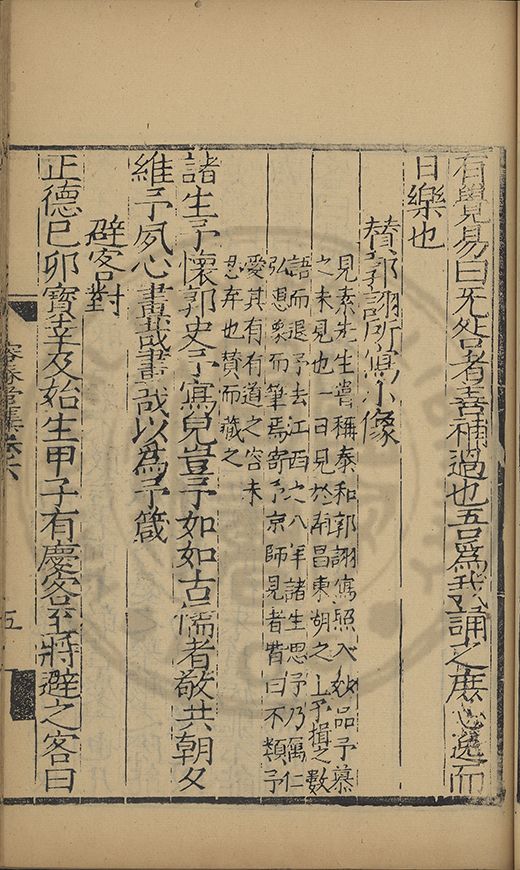 有覺易曰无咎者善補過也吾爲我誦之庶心逸而
日樂也
贊郭詡所寫小像
見素先生嘗稱泰和郭詡寫照入妙品予慕
之未見也一日見於南昌東湖之上予揖之數
語而退予去江西之八年諸生思予乃屬仁
弘愚象而筆焉寄予京師見者皆曰不類予
愛其有有道之容未
忍弃也贊而藏之
諸生予懷郭史予寫皃豈予如如古儒者敬共朝夕
維予夙心畫哉畫哉以爲予箴
辟客對
正德己卯寶辛及始生甲子有慶客至將避之客曰
容春堂集卷六
五